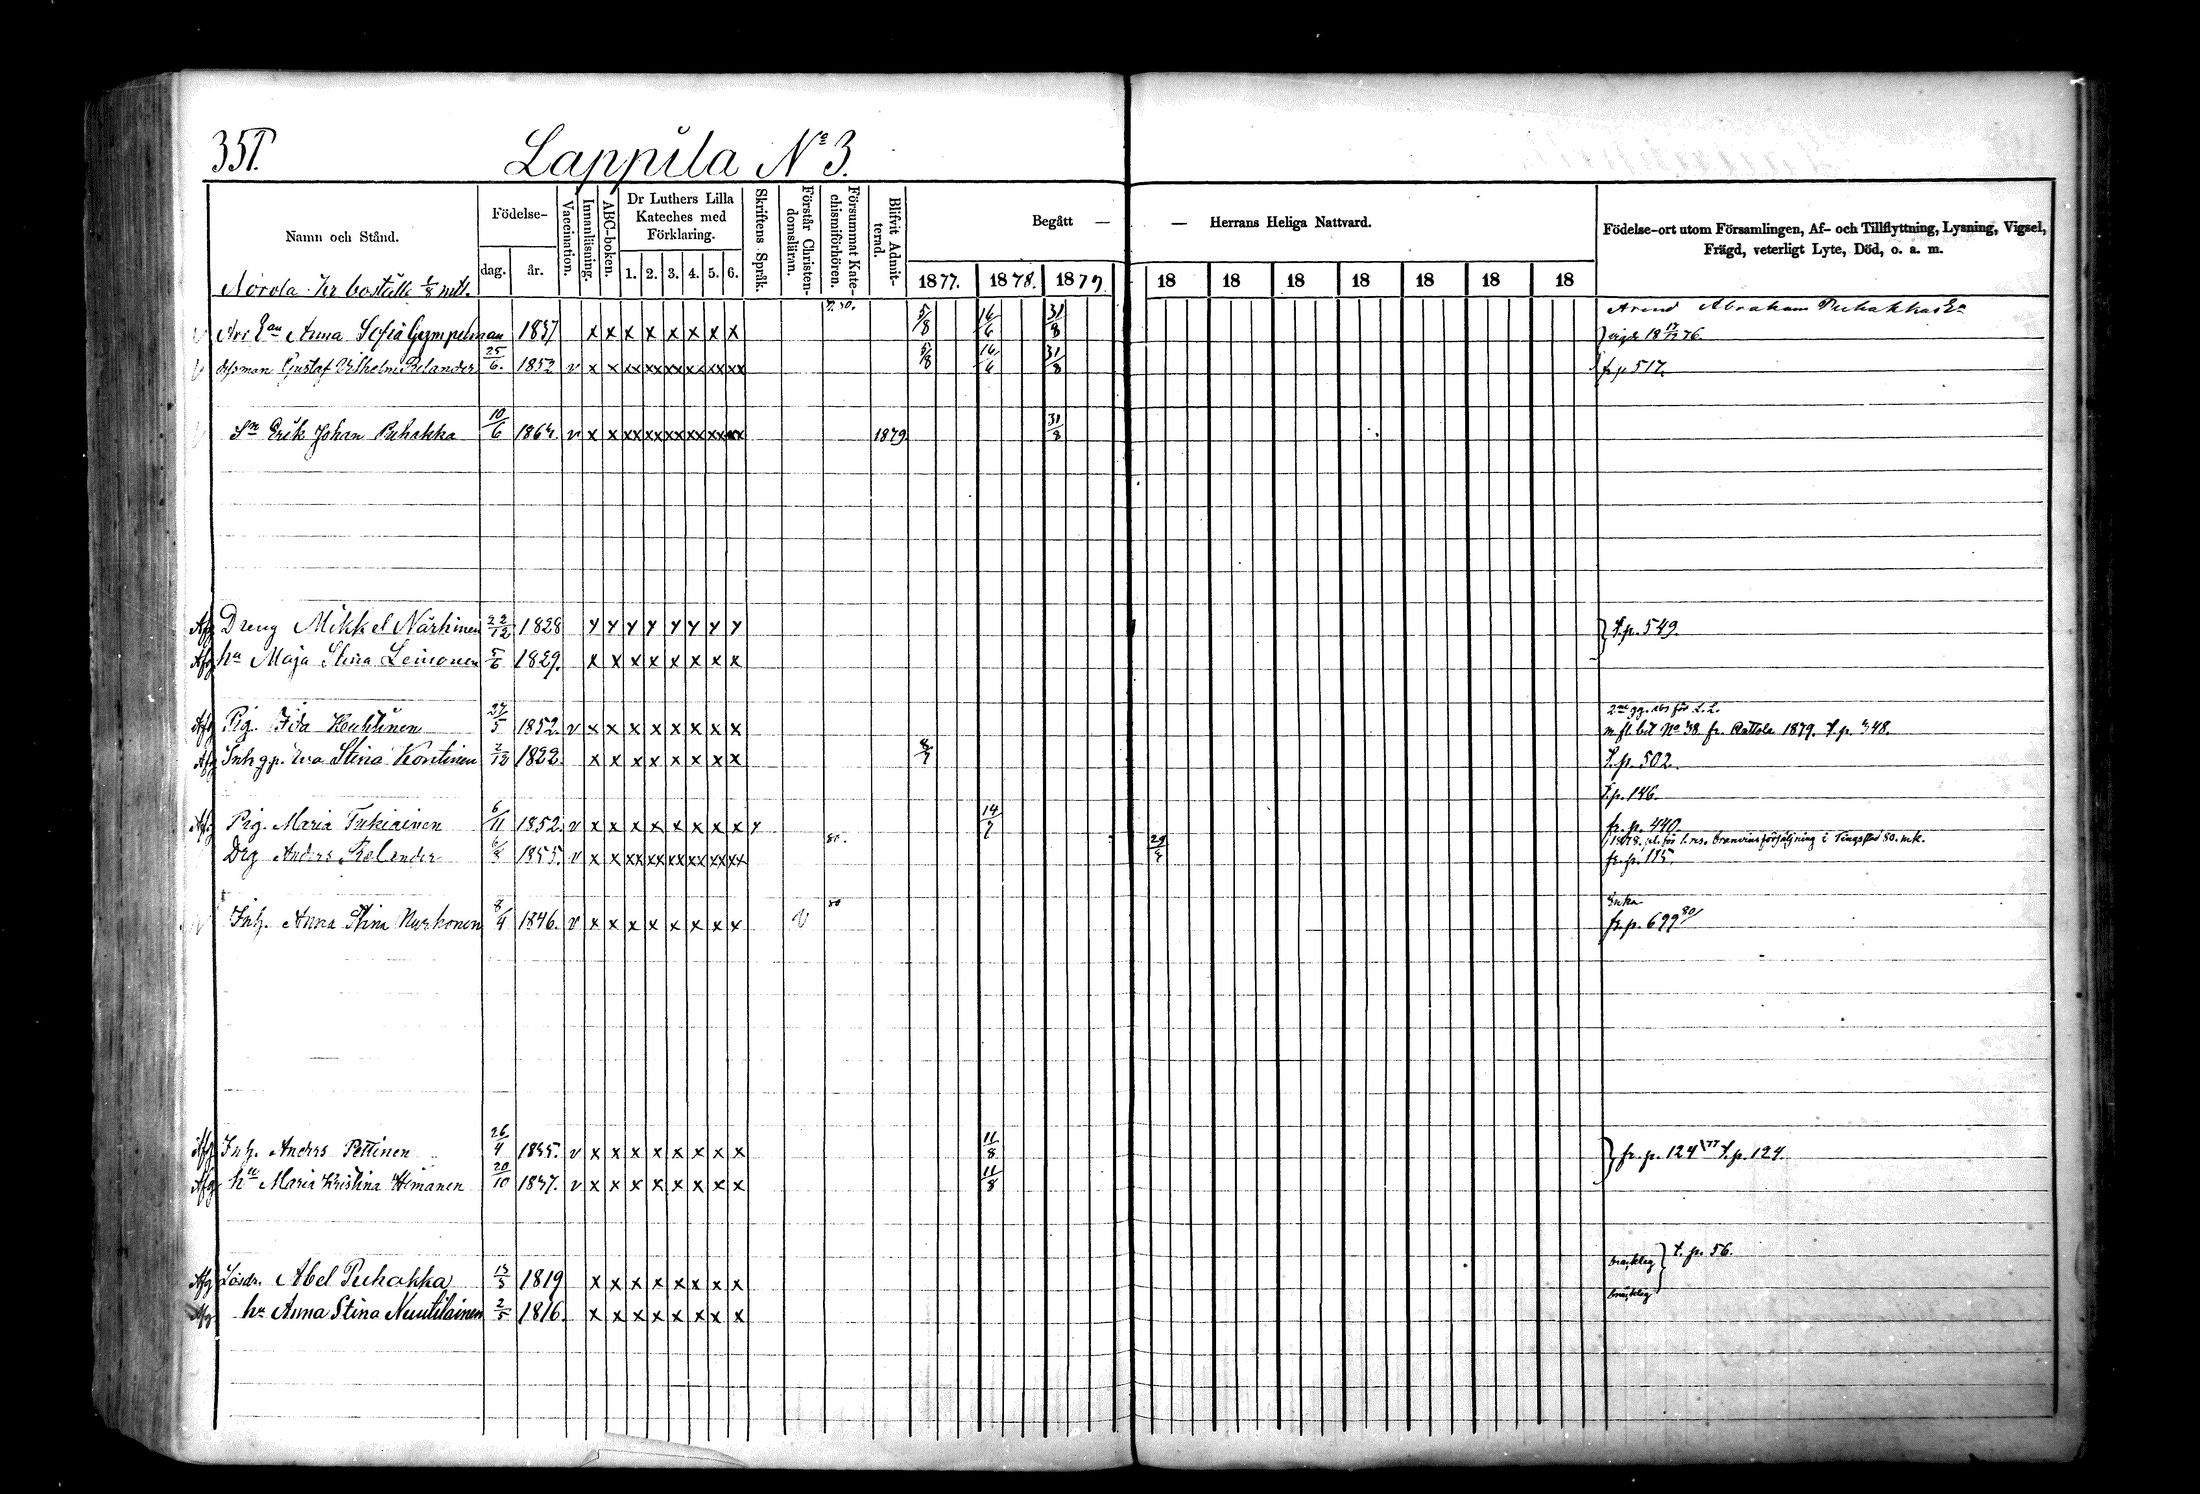 351.
Lappila No 3.
Namn och Stånd.
Födelse-
dag.
år.
Vaccination.
Innanläsning.
ABC-boken.
Dr Luthers Lilla
Kateches med
Förklaring.
1. 2. 3. 4. 5. 6.
Skriftens Språk.
Förstår Christen-
domsläran.
Försummat Kate-
chismiförhören.
Blifvit Admit-
terad.
Begått — — Herrans Heliga Nattvard.
1877. 1878. 1879 18 18 18 18 18 18 18
Födelse-ort utom Församlingen, Af- och Tillflyttning, Lysning, Vigsel,
Frägd, veterligt Lyte, Död, o. a. m.
boställe 1/8 mtl.
Arend Abraham Puhakkas Ea
Anna Sofia Gympelman 1837 x x x x x x x x 5/8 16/6 31/8
Gustaf Vilhelm Relander 25/6. 1852 v x x xx xx xx xx xx xx 5/8 16/6 31/8 fr p 517.
Sn Erik Johan Puhakka 10/6 1864. v x x xx xx xx xx xx xx 1879 31/8
Afg Dreng Mikkel Närhinen 22/12 1828 y y y y y y y y T.p. 549.
Afg hu Maja Stina Leinonen 5/6 1829. x x x x x x x x
Afg Pig. Ida Huhtinen 27/5 1852. v x x x x x x x x No 38 fr. 1879. T.p. 348.
Afg Inh gp. Eva Stina Kontinen 2/12 1822. x x x x x x x x 8/7 T.p. 502.
T.p. 146.
Afg Pig. Maria Tukiainen 6/11 1852. v x x x x x x x x y 14/7 fr. p. 440.
80. 1878. pl. för 1. res. bränvinsförsäljning i Tingsted 80. mk.
Drg Anders Relander 6/8 1855. v x x xx xx xx xx xx xx 29/8 fr. p.
80 Enka
Inh. Anna Stina Nurhonen 8/4 1846. v x x x x x x x x v fr. p. 699 80/
Afg Inh. Anders Pettinen 26/4 1845. v x x x x x x x x 11/8 fr. p. 124 \77 T.p. 124.
Afg hu Maria Kristina Himanen 20/10 1847. v x x x x x x x x 11/8
T. p. 56.
bräcklig
Afg Lösdr. Abel Puhakka 13/3 1819 x x x x x x x x
bräcklig
Afg hu Anna Stina Nuutilainen 2/5 1816. x x x x x x x x